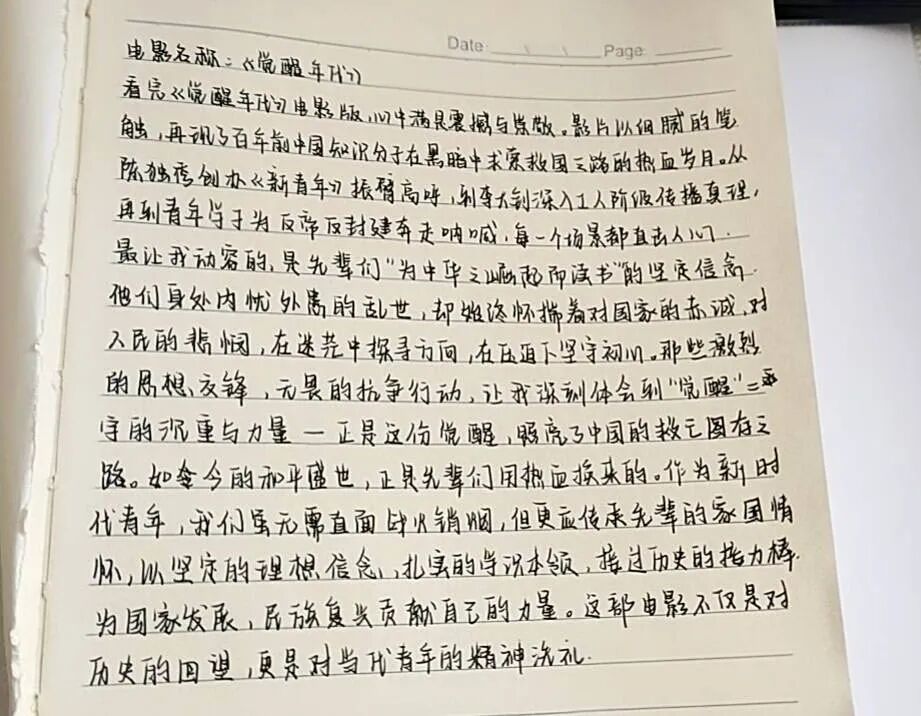 Date Page
电影名称:《觉醒年代》
看完《觉醒年代》电影版,心中满是震撼与崇敬。影片以细腻的笔
触,再现了百年前中国知识分子在黑暗中求索救国之路的热血岁月。从
陈独秀创办《新青年》振臂高呼,到李大钊深入工人阶级传播真理,
再到青年学子为反帝反封建奔走呐喊,每一个场景都直击人心.
最让我动容的,是先辈们"为中华之崛起而读书"的坚定信念.
他们身处内忧外患的乱世,却始终怀揣着对国家的赤诚,对
人民的悲悯,在迷茫中探寻方向,在压迫下坚守初心。那些激烈
的思想交锋,无畏的抗争行动,让我深刻体会到"觉醒"二
字的沉重与力量—正是这份觉醒,照亮了中国的救亡图存之
路。如今的和平盛世,正是先辈们用热血换来的。作为新时
代青年,我们虽无需直面战火销烟,但更应传承先辈的家国情
怀,以坚定的理想信念、扎实的学识本领,接过历史的接力棒.
为国家发展,民族复兴贡献自己的力量。这部电影不仅是对
历史的回望,更是对当代青年的精神洗礼.